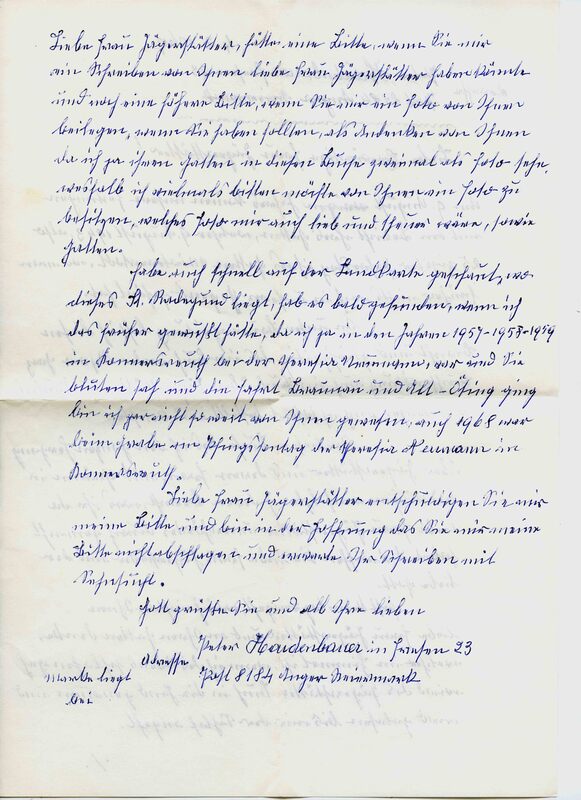 Liebe Frau Jägerstätter, hätte eine Bitte, wenn Sie mir
ein Schreiben von Ihnen liebe Frau Jägerstätter haben könnte
und noch eine höhere Bitte, wenn Sie mir ein Foto von Ihnen
beilegen, wenn Sie haben sollten, als Andenken von Ihnen
da ich ja ihren Gatten in diesen Buche zweimal als Foto sehe,
weshalb ich vielmals bitten möchte von Ihnen ein Foto zu
besitzen, welches Foto mir auch lieb und theuer wäre, sowie
Gatten.
Habe auch schnell auf der Landkarte geschaut, wo
dieses St. Radegund liegt, hab es bald gefunden, wenn ich
das früher gewußt hätte, da ich ja in den Jahren 1957-1958-1959
in Konnersreuth bei der Theresia Neumann, war und Sie
bluten sah und die Fahrt Braunau und Alt-Ötting ging
bin ich gar nicht so weit von Ihnen gewesen, auch 1968 war
beim Grabe am Pfingstsontag der Theresia Neumann in
Konnersreuth.
Liebe Frau Jägerstätter entschuldigen Sie mir
meine Bitte und bin in der Hoffnung das Sie mir meine
Bitte nicht abschlagen und erwarte Ihr Schreiben mit
Sehnsucht.
Gott grüße Sie und all Ihre lieben
Peter Haidenbauer in Fresen 23
Adresse
Marke liegt Post 8184 Anger Steiermark
bei